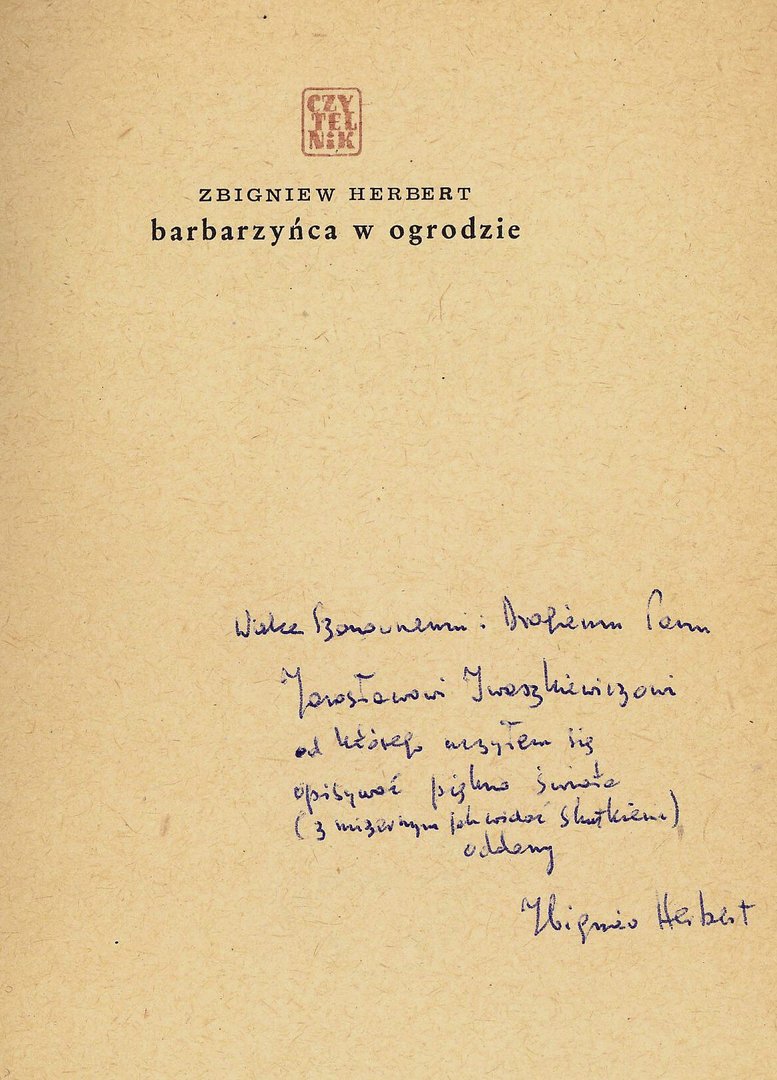 CZY
TEL
NiK
ZBIGNIEW HERBERT
barbarzyńca w ogrodzie
Wielce Szanownemu i Drogiemu Panu
Jarosławowi Iwaszkiewiczowi
od którego uczyłem się
opisywać piękno świata
(z mizernym jak widać skutkiem)
oddany
Zbigniew Herbert